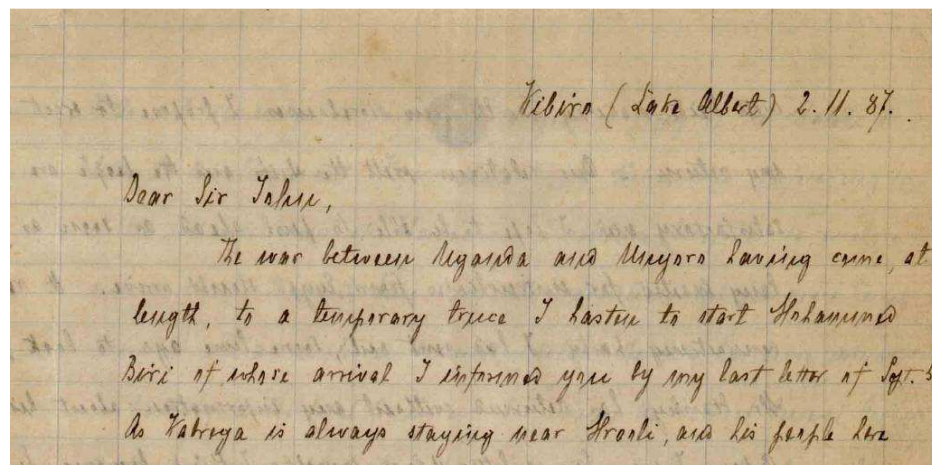 Kibiro (Lake Albert) 2. 11. 87.
Dear Sir John,
The war between Uganda and Unyoro having come, at
length, to a temporary truce I hasten to start Mohammed
Biri of whose arrival I informed you by my last letter of Sept. 5
As Kabrega is always staying near Mrooli, and his people here